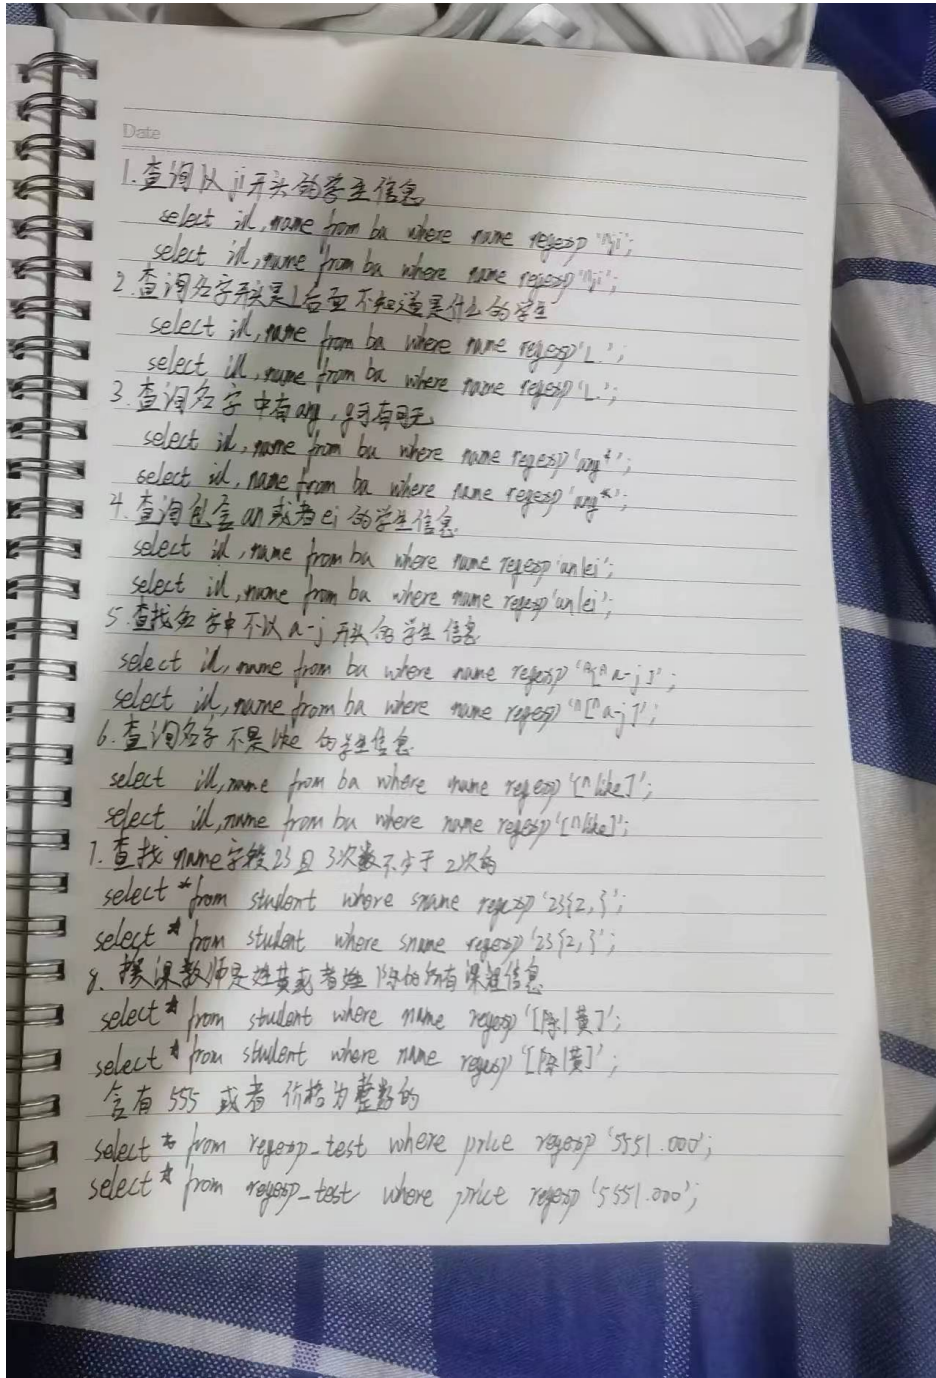 Date
1.查询以ji开头的学生信息
select id,name from ba where name regexp '^ji';
select id,name from ba where name regexp '^ji';
2.查询名字开头是L后面不知道是什么的学生
select id,name from ba where name regexp 'L.';
select id,name from ba where name regexp 'L.';
3.查询名字中有ang,g可有可无
select id,name from ba where name regexp 'ang*';
select id,name from ba where name regexp 'ang*';
4.查询包含an或者ei的学生信息
select id,name from ba where name regexp 'an|ei';
select id,name from ba where name regexp 'an|ei';
5.查找名字中不以a-j开头的学生信息
select id,name from ba where name regexp '^[^a-j]';
select id,name from ba where name regexp '^[^a-j]';
6.查询名字不是like的学生信息
select id,name from ba where name regexp '[^like]';
select id,name from ba where name regexp '[^like]';
7.查找name字段23且3次数不少于2次的
select * from student where sname regexp '23{2,}';
select * from student where sname regexp '23{2,}';
8.授课教师是姓黄或者姓陈的所有课程信息
select * from student where name regexp '[陈|黄]';
select * from student where name regexp '[陈|黄]';
含有555或者价格为整数的
select * from regexp_test where price regexp '555|.000';
select * from regexp_test where price regexp '555|.000';